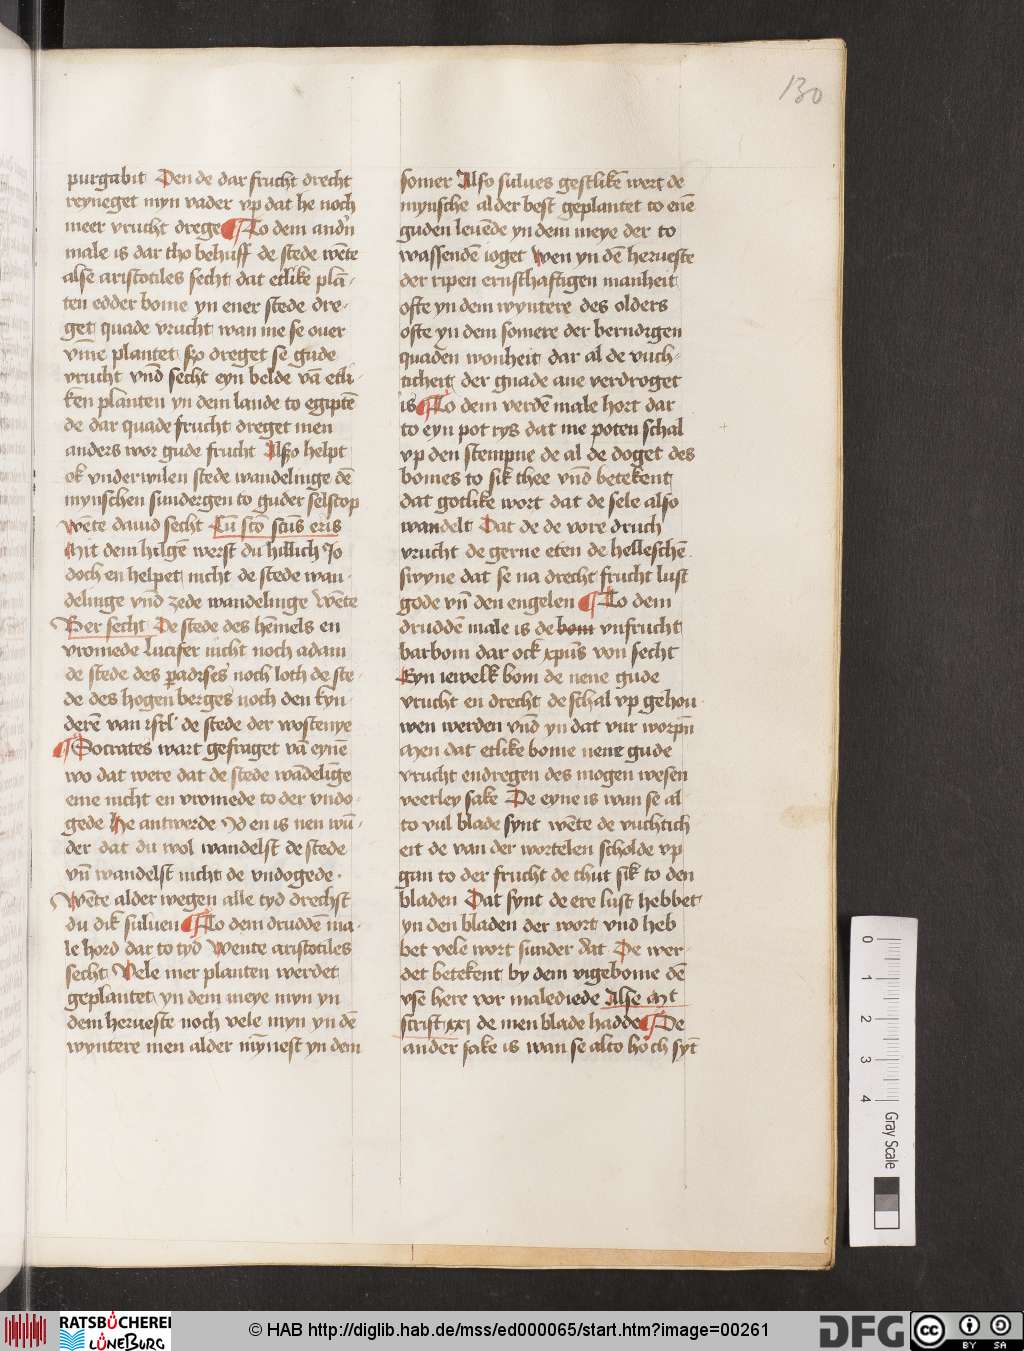 130
purgabit Den de dar frucht drecht
reyneget myn vader vp dat he noch
meer vrucht drege ¶ To dem andn̄
male is dar tho behuff de stede wēte
alse aristotiles secht dat etlike plā-
ten edder bome yn ener stede dre-
get quade vrucht wan me se ouer
vm̄e plantet so dreget se gude
vrucht vnd secht eyn belde vā etli-
ken planten yn dem lande to egiptē
de dar quade frucht dreget men
anders wor gude frucht Also helpt
ok vnderwilen stede wandelinge dē
mynschen sundergen to guder selscop
wēte dauid secht Cū scō scūs eris
Mit dem hilgē werst du hillich Jo
doch en helpet nicht de stede wan-
delinge vnd zede wandelinge Wēte
Ber secht De stede des hēmels en
vromede lucifer nicht noch adam
de stede des padises noch loth de ste-
de des hogen berges noch den kyn-
derē van isrl' de stede der wostenye
¶ Socrates wart gefraget vā eyne
wo dat were dat de stede wādelīge
eme nicht en vromede to der vndo-
gede He antwerde Id en is nen wū-
der dat du wol wandelst de stede
vn̄ wandelst nicht de vndogede.
Wēte alder wegen alle tyd drechst
du dik suluen ¶ To dem druddē ma-
le hord dar to tyd Wente aristotiles
secht Vele mer planten werdet
geplantet yn dem meye myn yn
dem herueste noch vele myn yn dē
wyntere men alder mȳnest yn dem
somer Also sulues gestlikē wert de
mynsche alder best geplantet to enē
guden leuēde yn dem meye der to
wassendē ioget wen yn dē herueste
der ripen ernsthaftigen manheit
ofte yn dem wyntere des olders
ofte yn dem somere der bernorgen
quaden wonheit dar al de vuch-
ticheit der gnade ane verdroget
is ¶ To dem verdē male hort dar
to eyn pot rys dat me poten schal
vp den stempne de al de doget des
bomes to sik thee vnd betekent
dat gotlike wort dat de sele also
wandelt Dat de de vore druch
vrucht de gerne eten de helleschē
swyne dat se na drecht frucht lust
gode vn̄ den engelen ¶ To dem
druddē male is de bom vnfrucht
barbom dar ock xpūs von secht
Eyn iewelk bom de nene gude
vrucht en drecht de schal vp gehou
wen werden vnd yn dat vur worpn̄
Men dat etlike bome nene gude
vrucht endregen des mogen wesen
veerley sake De eyne is wan se al
to vul blade synt wēte de vuchtich
eit de van der wortelen scholde vp
gan to der frucht de thut sik to den
bladen Dat synt de ere lust hebbet
yn den bladen der wort vnd heb
bet vele wort sunder dat De wer-
det betekent by dem vigebome dē
vse here vor maledide Alse Mt
scrift xxj de men blade hadde ¶ De
ander sake is wan se alto hoch syt̄
0
1
2
3
4
Gray Scale
RATSBÜCHEREI
LÜNEBURG
© HAB http://diglib.hab.de/mss/ed000065/start.htm?image=00261
DFG
cc
BY SA